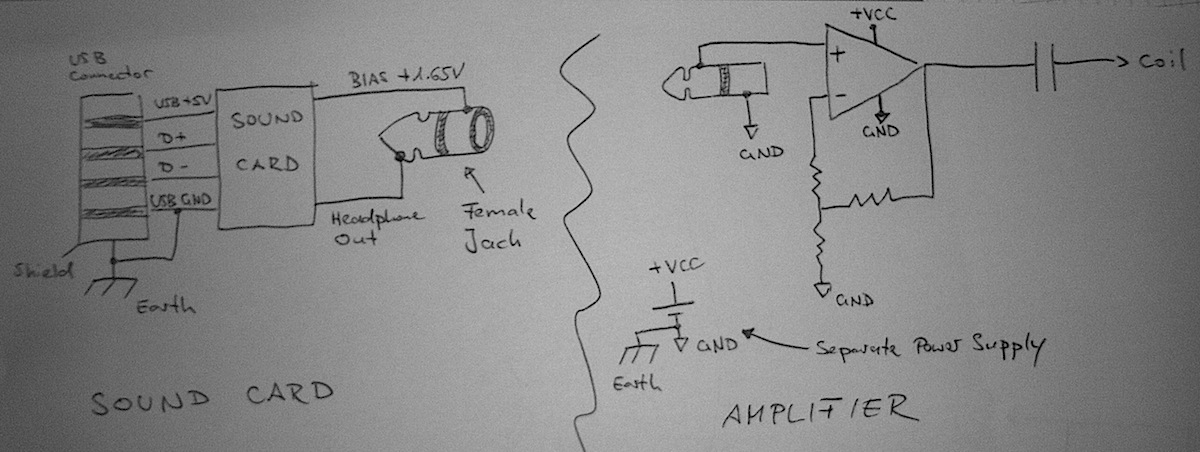 USB
Connector
USB +5V
D+
D-
USB GND
SOUND
CARD
BIAS +1.65V
Headphone
Out
Female
Jack
Shield
Earth
SOUND CARD
+VCC
+
-
GND
GND
Coil
GND
+VCC
GND
Earth
Separate Power Supply
AMPLIFIER